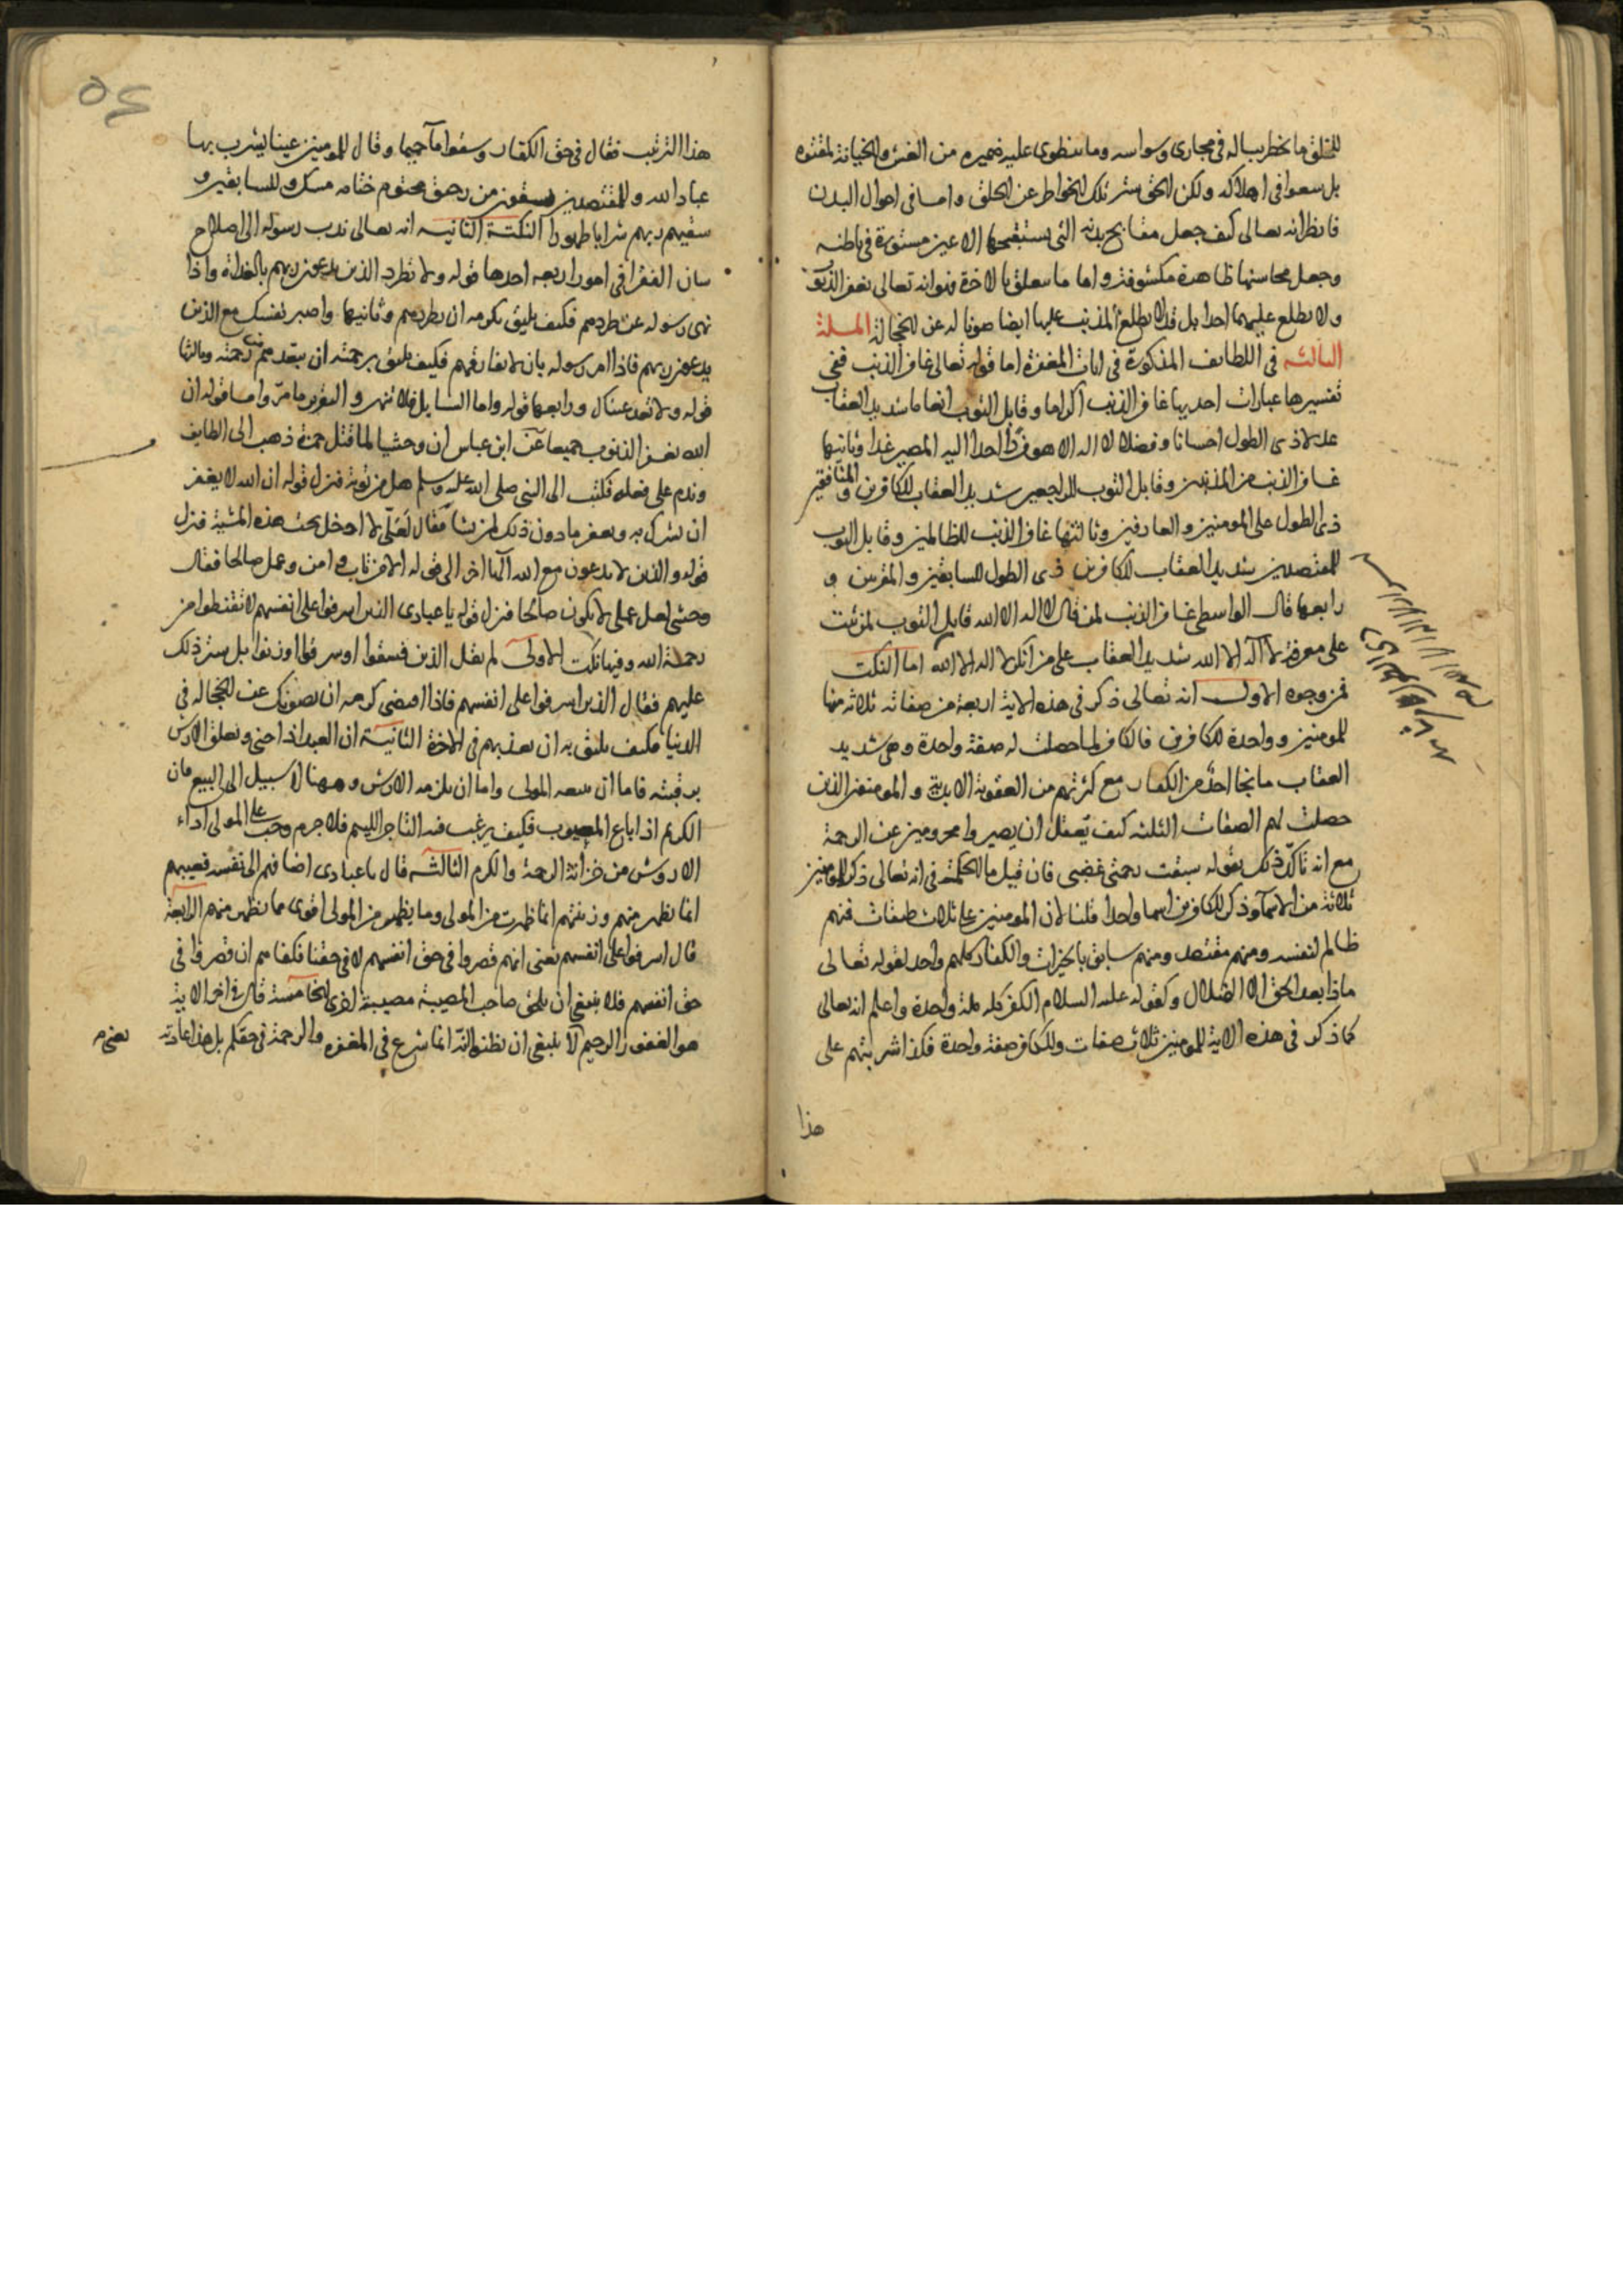 للخلق ما يخطر بباله في مجارى وسواسه وما تنطوى عليه ضميره من الغش والخيانة لمقتوه
بل سعوا في اهلاكه ولكن الحق ستر تلك الخواطر عن الخلق واما في احوال البدن
فانظر انه تعالى كيف جعل مقابح بدنه التي يستقبحها الاعين مستورة في باطنه
وجعل محاسنها ظاهرة مكشوفة واما ما يتعلق بالاخرة فهو انه تعالى يغفر الذنوب
ولا يطلع عليها احدا بل قد لا يطلع المذنب عليها ايضا صونا له عن الخجالة المسلة
الثالثه في اللطايف المذكورة في ايات المغفرة اما قوله تعالى غافر الذنب ففي
تفسيرها عبارات احديها غافر الذنب اكراما وقابل التوب انعاما شديد العقاب
عدلا ذى الطول احسانا وفضلا لا اله الا هو فردا احدا اليه المصير غدا وثانيها
غافر الذنب من المذنبين وقابل التوب للراجعين شديد العقاب للكافرين والمنافقين
ذى الطول على المومنين والعارفين وثالثها غافر الذنب للظالمين وقابل التوب
للمقتصدين شديد العقاب للكافرين ذى الطول للسابقين والمقربين و
رابعها قال الواسطى غافر الذنب لمن قال لا اله الا الله قابل التوب لمن ثبت
على معرفة لا اله الا الله شديد العقاب على من انكر لا اله الا الله اما النكت
فمن وجوه الاول انه تعالى ذكر في هذه الاية اربعة من صفاته ثلاثه منها
للمومنين وواحدة للكافرين فالكافر لما حصلت له صفة واحدة وهى شديد
العقاب ما نجا احد من الكفار مع كثرتهم من العقوبة الابدية والمومنون الذين
حصلت لهم الصفات الثلثه كيف يعقل ان يصيروا محرومين عن الرحمة
مع انه تاكد ذلك بقوله سبقت رحمتى غضبى فان قيل ما الحكمة في انه تعالى ذكر للمومنين
ثلاثة من الاسماء وذكر للكافرين اسما واحدا قلنا لان المومنين على ثلاث طبقات فمنهم
ظالم لنفسه ومنهم مقتصد ومنهم سابق بالخيرات والكفار كلهم واحد لقوله تعالى
ماذا بعد الحق الا الضلال وكقوله عليه السلام الكفر كله ملة واحدة واعلم انه تعالى
كما ذكر في هذه الاية للمومنين ثلاث صفات وللكافر صفة واحدة فكذا شربتهم على
هذا
هذا الترتيب فقال في حق الكفار وسقوا ماء حميما وقال للمومنين عينا يشرب بها
عباد الله وللمقتصدين يسقون من رحيق مختوم ختامه مسك وللسابقين و
سقيهم ربهم شرابا طهورا النكتة الثانيه انه تعالى ندب رسوله الى اصلاح
شان الفقرا في امور اربعه احدها قوله ولا تطرد الذين يدعون ربهم بالغداة واذا
نهى رسوله عن طردهم فكيف يليق بكرمه ان يطردهم وثانيها واصبر نفسك مع الذين
يدعون ربهم فاذا امر رسوله بان لا يفارقهم فكيف يليق برحمته ان يبعدهم عن رحمته وثالثها
قوله ولا تعد عيناك ورابعها قوله واما السايل فلا تنهر والتقرير ما مر واما قوله ان
الله يغفر الذنوب جميعا عن ابن عباس ان وحشيا لما قتل حمزة ذهب الى الطايف
وندم على فعله فكتب الى النبى صلى الله عليه وسلم هل من توبة فنزل قوله ان الله لا يغفر
ان يشرك به ويغفر ما دون ذلك لمن يشا فقال لعلى لا ادخل تحت هذه المشية فنزل
قوله والذين لا يدعون مع الله الها اخر الى قوله الا من تاب وامن وعمل صالحا فقال
وحشى لعل عملى لا يكون صالحا فنزل قوله يا عبادى الذين اسرفوا على انفسهم لا تقنطوا من
رحمة الله وفيها نكت الاولى لم يقل الذين فسقوا او سرقوا او زنوا بل ستر ذلك
عليهم فقال الذين اسرفوا على انفسهم فاذا اقتضى كرمه ان يصونك عن الخجاله في
الدنيا فكيف يليق به ان يعذبهم في الاخرة الثانية ان العبد اذا جنى وتعلق الارش
برقبته فاما ان يبيعه المولى واما ان يلزمه الارش وههنا لا سبيل الى البيع فان
الكريم اذا باع المعيوب فكيف يرغب فيه التاجر اللئيم فلا جرم وجب على المولى اداء
الاروش من خزانة الرحمة والكرم الثالثه قال يا عبادى اضافهم الى نفسه فعيبهم
انما يظهر منهم وزينتهم انما ظهرت من المولى وما يظهر من المولى اقوى مما يظهر منهم الرابعة
قال اسرفوا على انفسهم يعنى انهم قصروا في حق انفسهم لا في حقنا فكفاهم ان قصروا في
حق انفسهم فلا ينبغى ان يلحق صاحب المصيبة مصيبة اخرى الخامسة قال في اخر الاية
هو الغفور الرحيم لا ينبغى ان يظنوا انه انما شرع في المغفره والرحمة في حقكم بل هذا عادته
يعنى